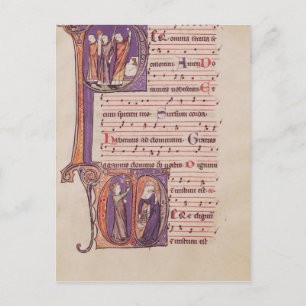 omnia secula se
culorum Amen Do
minus vobiscum E
cum spiritu tuo Sursum corda
Habemus ad dominum Gratias
agamus domino deo nostro Dignum
et iustum est
dignum
et iustum est